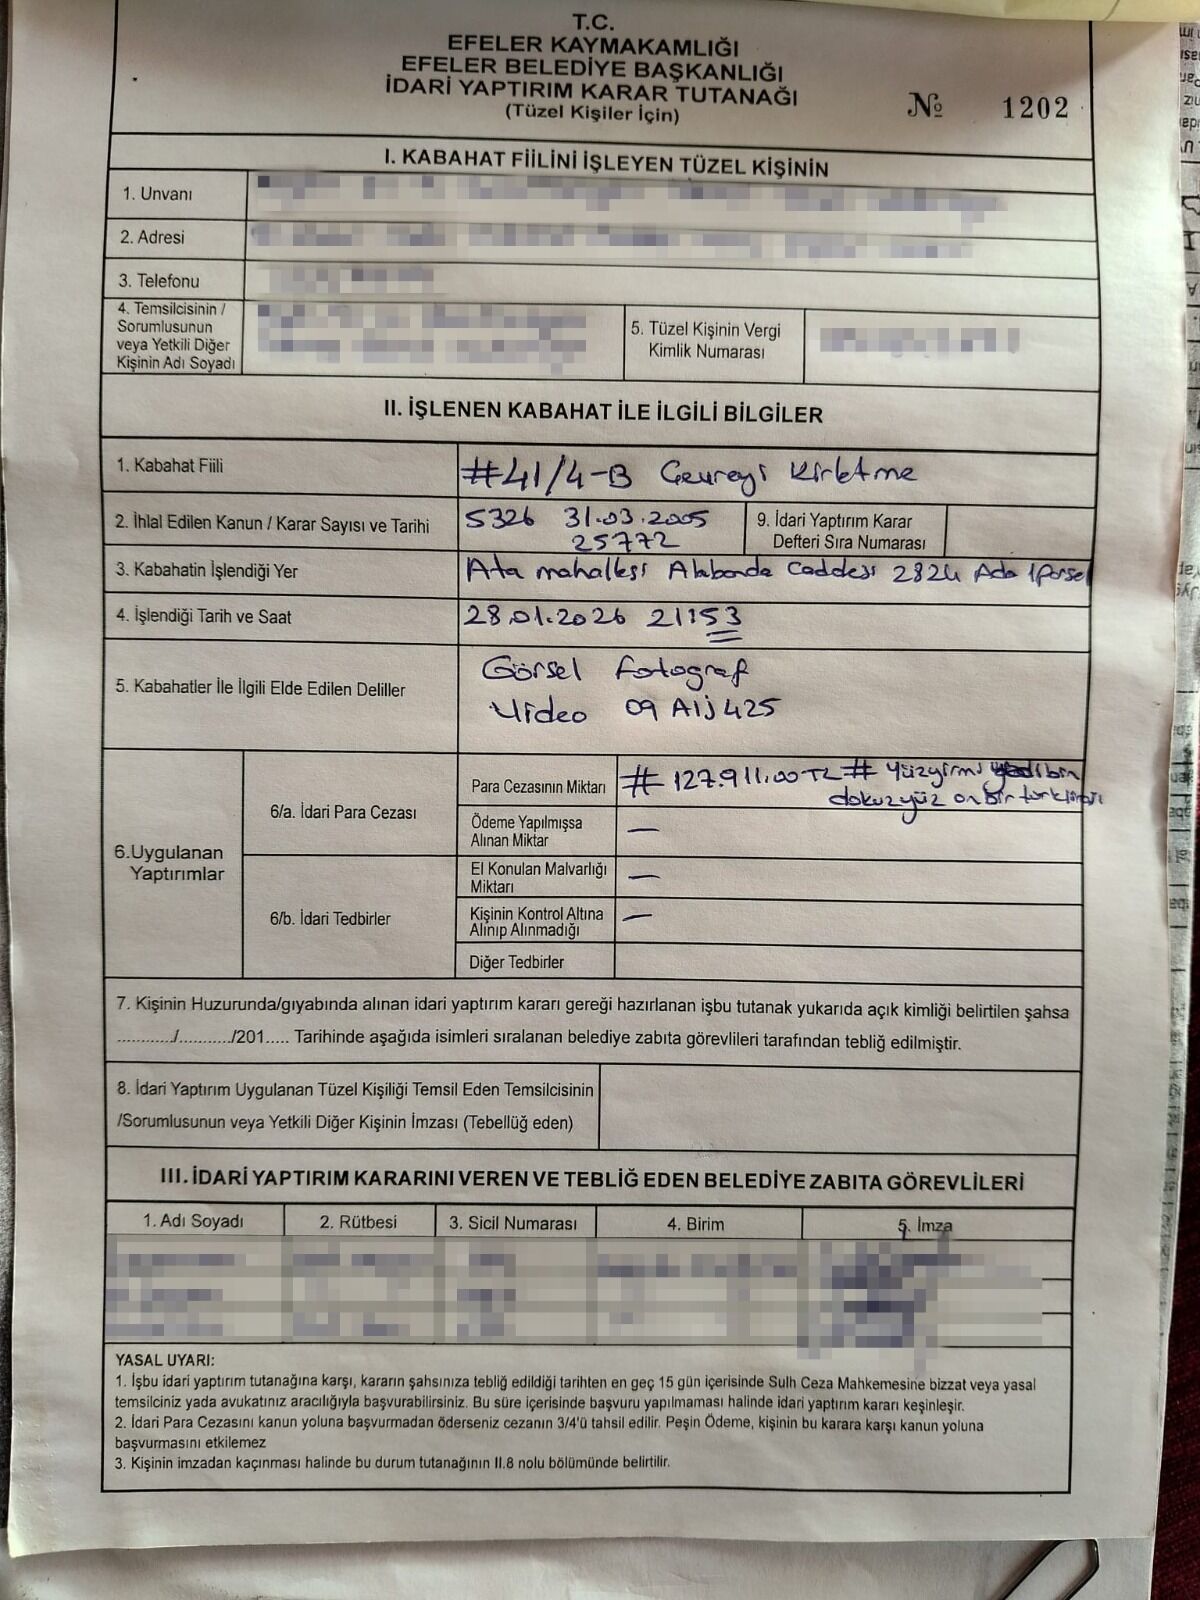 T.C.
EFELER KAYMAKAMLIĞI
EFELER BELEDİYE BAŞKANLIĞI
İDARİ YAPTIRIM KARAR TUTANAĞI
(Tüzel Kişiler İçin)
№ 1202
I. KABAHAT FİİLİNİ İŞLEYEN TÜZEL KİŞİNİN
1. Unvanı
2. Adresi
3. Telefonu
4. Temsilcisinin /
Sorumlusunun
veya Yetkili Diğer
Kişinin Adı Soyadı
5. Tüzel Kişinin Vergi
Kimlik Numarası
II. İŞLENEN KABAHAT İLE İLGİLİ BİLGİLER
1. Kabahat Fiili
#41/4-B Çevreyi Kirletme
2. İhlal Edilen Kanun / Karar Sayısı ve Tarihi
5326 31.03.2005
25772
9. İdari Yaptırım Karar
Defteri Sıra Numarası
3. Kabahatin İşlendiği Yer
Ata mahallesi Alabanda Caddesi 2824 Ada 1Parsel
4. İşlendiği Tarih ve Saat
28.01.2026 21:53
5. Kabahatler İle İlgili Elde Edilen Deliller
Görsel Fotograf
Video 09 AIJ 425
6.Uygulanan
Yaptırımlar
6/a. İdari Para Cezası
Para Cezasının Miktarı
# 127.911.00 TL # Yüzyirmi yedi bin
dokuzyüz on bir türk lirası
Ödeme Yapılmışsa
Alınan Miktar
—
6/b. İdari Tedbirler
El Konulan Malvarlığı
Miktarı
—
Kişinin Kontrol Altına
Alınıp Alınmadığı
—
Diğer Tedbirler
7. Kişinin Huzurunda/gıyabında alınan idari yaptırım kararı gereği hazırlanan işbu tutanak yukarıda açık kimliği belirtilen şahsa
.........../.........../201..... Tarihinde aşağıda isimleri sıralanan belediye zabıta görevlileri tarafından tebliğ edilmiştir.
8. İdari Yaptırım Uygulanan Tüzel Kişiliği Temsil Eden Temsilcisinin
/Sorumlusunun veya Yetkili Diğer Kişinin İmzası (Tebellüğ eden)
III. İDARİ YAPTIRIM KARARINI VEREN VE TEBLİĞ EDEN BELEDİYE ZABITA GÖREVLİLERİ
1. Adı Soyadı 2. Rütbesi 3. Sicil Numarası 4. Birim 5. İmza
YASAL UYARI:
1. İşbu idari yaptırım tutanağına karşı, kararın şahsınıza tebliğ edildiği tarihten en geç 15 gün içerisinde Sulh Ceza Mahkemesine bizzat veya yasal
temsilciniz yada avukatınız aracılığıyla başvurabilirsiniz. Bu süre içerisinde başvuru yapılmaması halinde idari yaptırım kararı keşinleşir.
2. İdari Para Cezasını kanun yoluna başvurmadan öderseniz cezanın 3/4'ü tahsil edilir. Peşin Ödeme, kişinin bu karara karşı kanun yoluna
başvurmasını etkilemez
3. Kişinin imzadan kaçınması halinde bu durum tutanağının II.8 nolu bölümünde belirtilir.